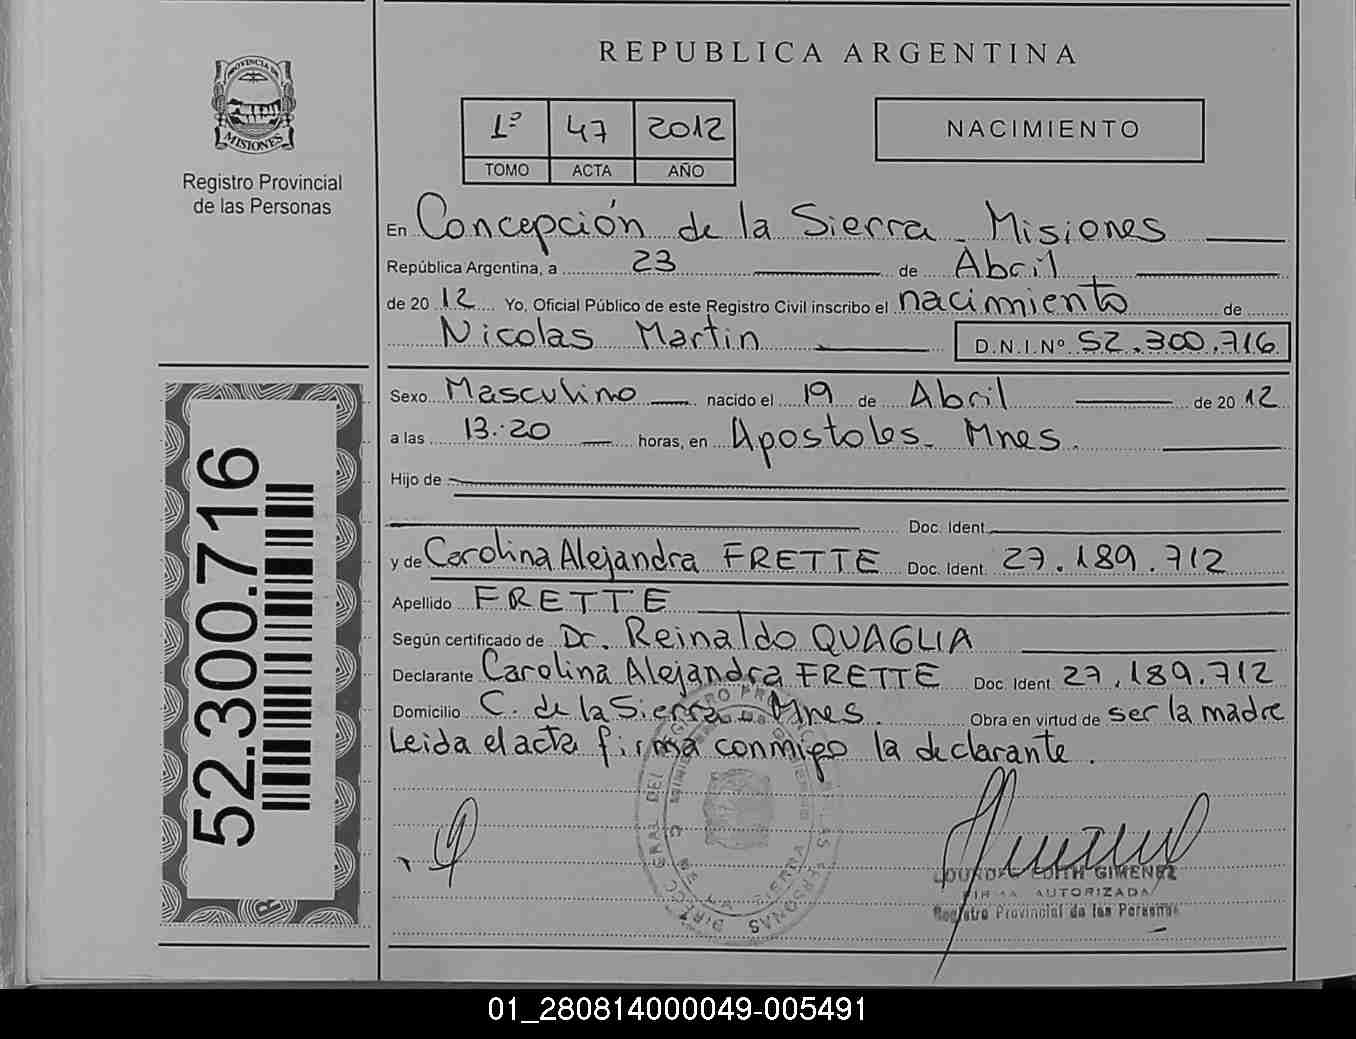 REPUBLICA ARGENTINA
PROVINCIA DE
MISIONES
Registro Provincial
de las Personas
1º 47 2012
TOMO ACTA AÑO
NACIMIENTO
En Concepción de la Sierra - Misiones
República Argentina, a 23 de Abril
de 2012 Yo, Oficial Público de este Registro Civil inscribo el nacimiento de
Nicolas Martin D.N.I.Nº 52.300.716
Sexo Masculino nacido el 19 de Abril de 2012
a las 13:20 horas, en Apostoles - Mnes.
Hijo de
Doc. Ident.
y de Carolina Alejandra FRETTE Doc. Ident. 27.189.712
Apellido FRETTE
Según certificado de Dr. Reinaldo QUAGLIA
Declarante Carolina Alejandra FRETTE Doc. Ident. 27.189.712
Domicilio C. de la Sierra - Mnes. Obra en virtud de ser la madre
Leida el acta firma conmigo la declarante.
52.300.716
EDITH GIMENEZ
AUTORIZADA
Registro Provincial de las Personas
01_280814000049-005491